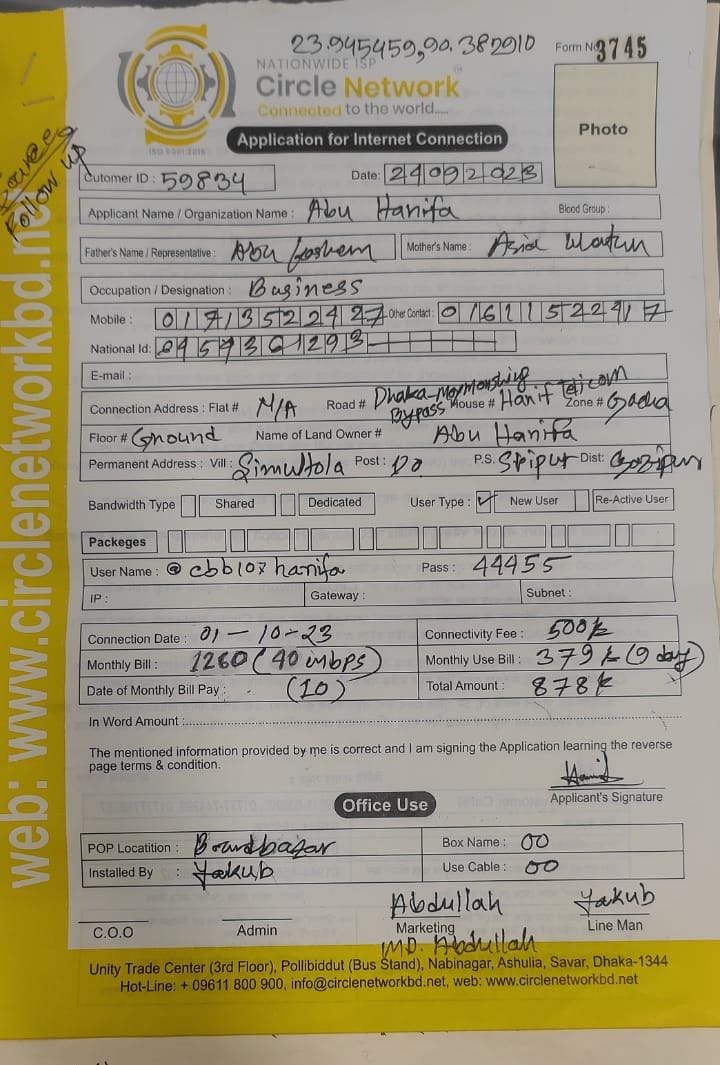 23.945459,90.382910
Form No 3745
NATIONWIDE ISP
Circle Network
Connected to the world.....
ISO 9001:2015
Application for Internet Connection
Photo
Follow up
Cutomer ID : 59834
Date: 24092023
Applicant Name / Organization Name : Abu Hanifa Blood Group :
Father's Name / Representative : Abu Mother's Name : Asia
Occupation / Designation : Business
Mobile : 01713522427 Other Contact : 01611522417
National Id: 8959361293
E-mail :
Connection Address : Flat # N/A Road # Dhaka-Maymonshing Bypass House # Hanif Telicom Zone # Gacha
Floor # Ground Name of Land Owner # Abu Hanifa
Permanent Address : Vill : Simultola Post : Do P.S. Sripur Dist: Gazipur
Bandwidth Type Shared Dedicated User Type : ✓ New User Re-Active User
Packeges
User Name : @ cbb107hanifa Pass : 44455
IP : Gateway : Subnet :
Connection Date : 01-10-23 Connectivity Fee : 500
Monthly Bill : 1260 (40 mbps) Monthly Use Bill : 379 (9 day)
Date of Monthly Bill Pay : (10) Total Amount : 878
In Word Amount :
The mentioned information provided by me is correct and I am signing the Application learning the reverse
page terms & condition.
Applicant's Signature
Office Use
POP Locatition : Boardbazar Box Name : 00
Installed By : Yakub Use Cable : 00
Abdullah Yakub
C.O.O Admin Marketing Line Man
MD. Abdullah
Unity Trade Center (3rd Floor), Pollibiddut (Bus Stand), Nabinagar, Ashulia, Savar, Dhaka-1344
Hot-Line: + 09611 800 900, info@circlenetworkbd.net, web: www.circlenetworkbd.net
web: www.circlenetworkbd.net